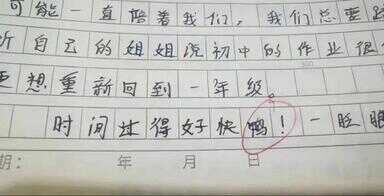 可能一直陪着我们，我们总要
听自己的姐姐说初中的作业很
更想重新回到一年级。
时间过得好快鸭！一眨眼
期：年 月 日
300